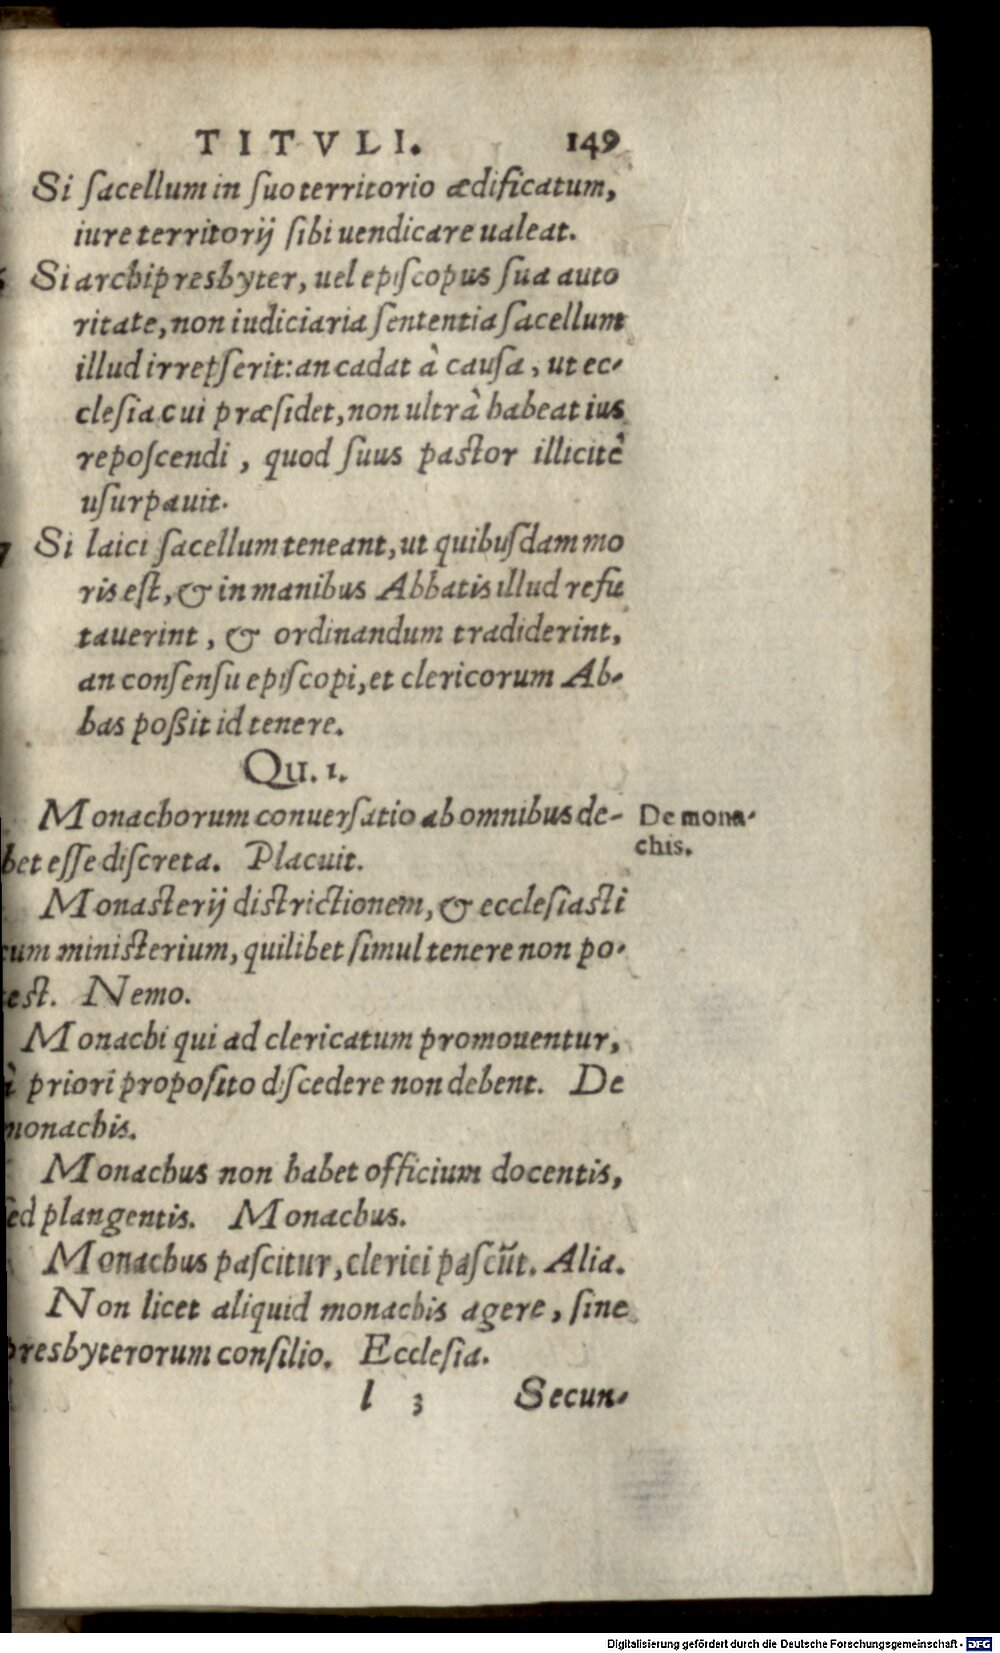 TITVLI. 149
Si sacellum in suo territorio ædificatum,
iure territorij sibi uendicare ualeat.
Si archipresbyter, uel episcopus sua auto
ritate, non iudiciaria sententia sacellum
illud irrepserit: an cadat à causa, ut ec-
clesia cui præsidet, non ultrà habeat ius
reposcendi, quod suus pastor illicitè
usurpauit.
7 Si laici sacellum teneant, ut quibusdam mo
ris est, & in manibus Abbatis illud refu
tauerint, & ordinandum tradiderint,
an consensu episcopi, et clericorum Ab-
bas poßit id tenere.
Qu. 1.
Monachorum conuersatio ab omnibus de- De mona-
bet esse discreta. Placuit. chis.
Monasterij districtionem, & ecclesiasti
cum ministerium, quilibet simul tenere non po-
est. Nemo.
Monachi qui ad clericatum promouentur,
à priori proposito discedere non debent. De
monachis.
Monachus non habet officium docentis,
sed plangentis. Monachus.
Monachus pascitur, clerici pascūt. Alia.
Non licet aliquid monachis agere, sine
presbyterorum consilio. Ecclesia.
l 3 Secun-
Digitalisierung gefördert durch die Deutsche Forschungsgemeinschaft - DFG